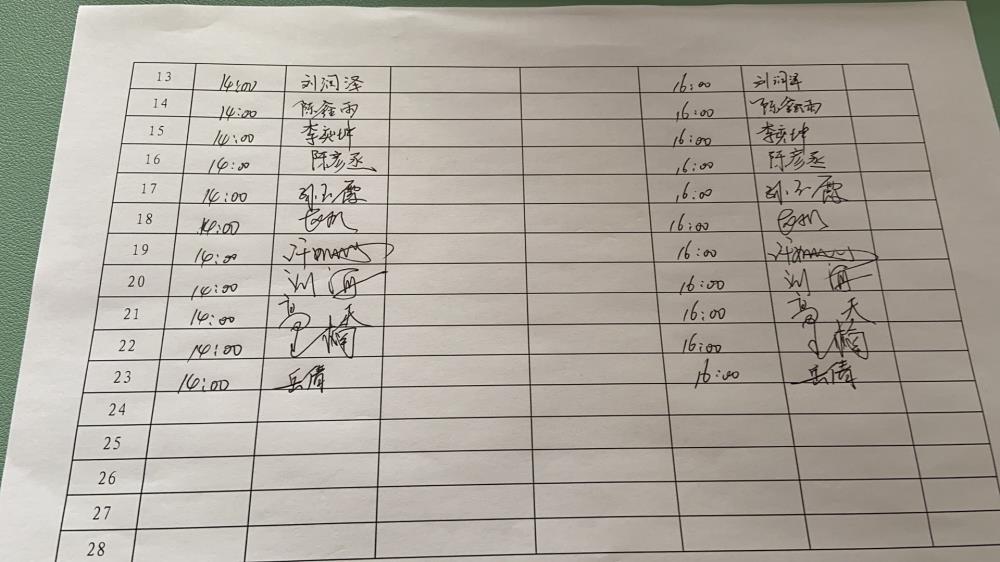 13 14:00 刘润泽 16:00 刘润泽
14 14:00 陈鑫雨 16:00 陈鑫雨
15 14:00 李奕坤 16:00 李奕坤
16 14:00 陈彦丞 16:00 陈彦丞
17 14:00 16:00
18 14:00 16:00
19 14:00 许 16:00 许
20 14:00 刘 16:00 刘
21 14:00 高天 16:00 高天
22 14:00 楠 16:00 楠
23 14:00 岳倩 16:00 岳倩
24
25
26
27
28